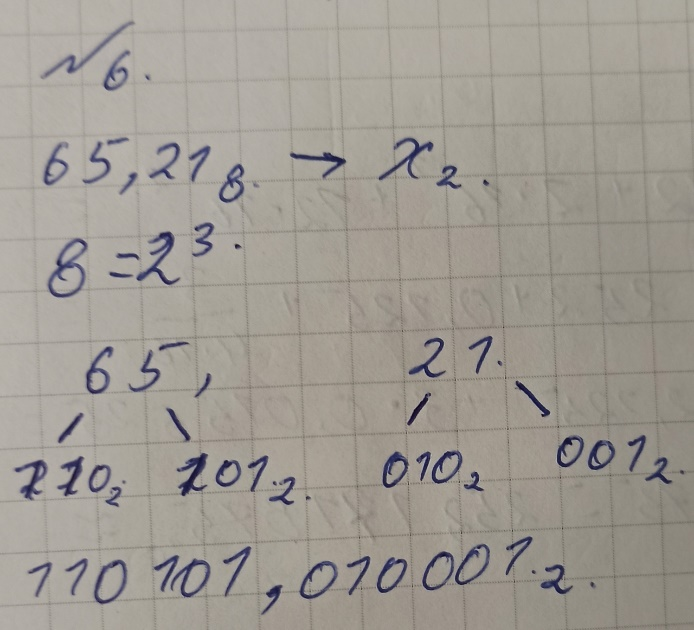 №6.
65,21₈. → x₂.
8=2³.
65, 21.
110₂ 101₂. 010₂ 001₂.
110101,010001.₂.